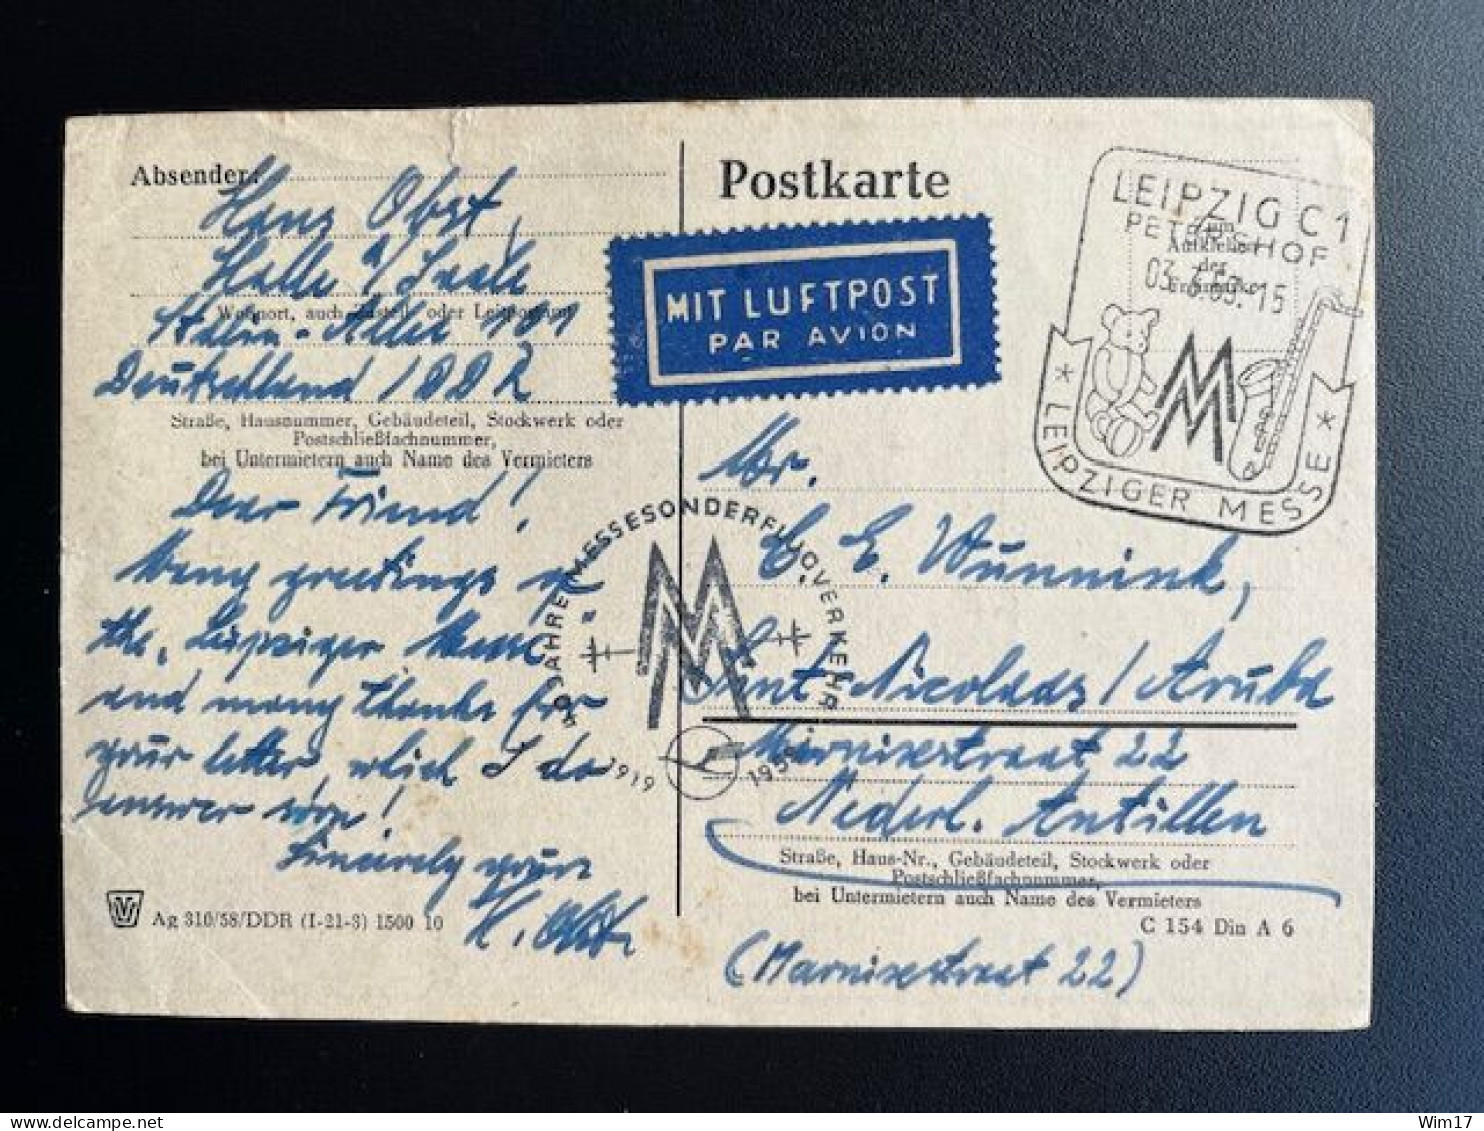 Absender:
Hans Obst,
Halle a/Saale
Wohnort, auch Zustell- oder Leitpostamt
101
Deutschland / DDR
Straße, Hausnummer, Gebäudeteil, Stockwerk oder
Postschließfachnummer,
bei Untermietern auch Name des Vermieters
Dear Friend!
Many greetings of
the Leipziger Messe
and many thanks for
your letter, which I do
answer soon!
Sincerely yours
H. Obst.
Ag 310/58/DDR (I-21-3) 1500 10
Postkarte
MIT LUFTPOST
PAR AVION
LEIPZIG C1
PETERSHOF
Zum
Aufkleben
der
* LEIPZIGER MESSE *
JAHRE MESSESONDERFLUGVERKEHR
1919
Mr.
E. E. Wunnink,
Sint Nicolaas / Aruba
Marnixestraat 22
Nederl. Antillen
Straße, Haus-Nr., Gebäudeteil, Stockwerk oder
Postschließfachnummer,
bei Untermietern auch Name des Vermieters
C 154 Din A 6
(Marnixestraat 22)
Wim17